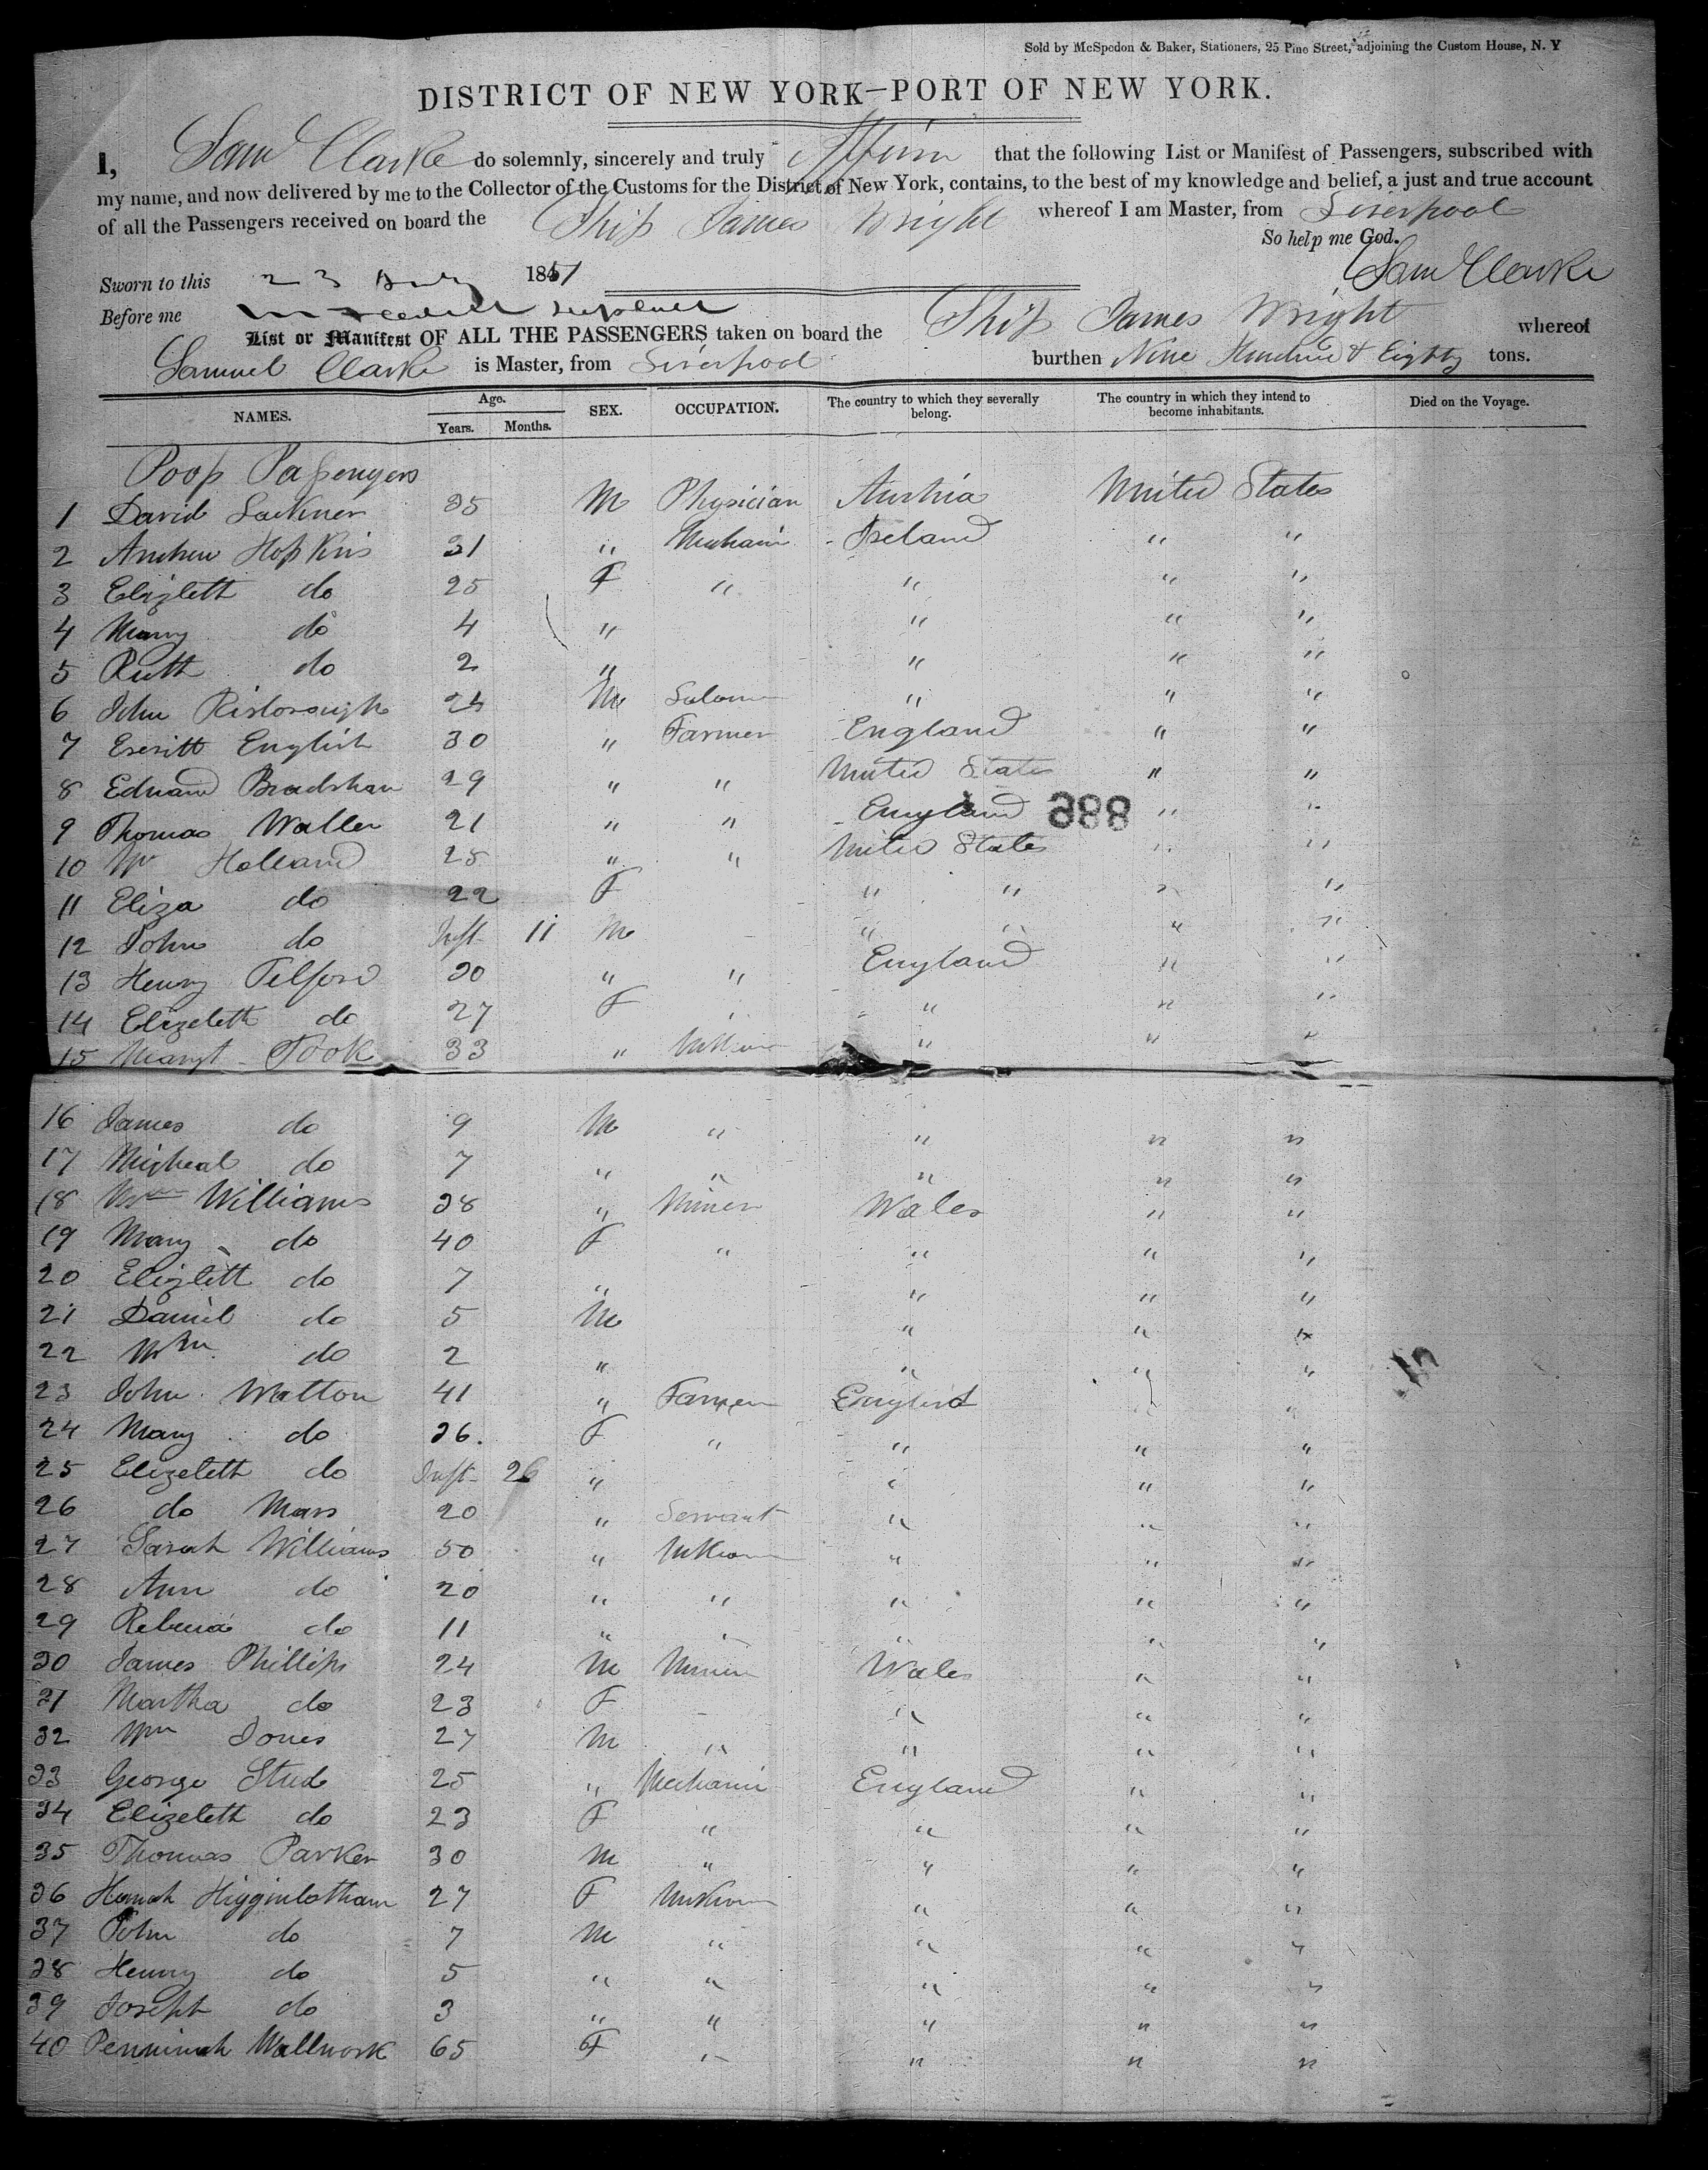 Sold by McSpedon & Baker, Stationers, 25 Pine Street, adjoining the Custom House, N. Y
DISTRICT OF NEW YORK—PORT OF NEW YORK.
I, Saml Clarke do solemnly, sincerely and truly Affirm that the following List or Manifest of Passengers, subscribed with
my name, and now delivered by me to the Collector of the Customs for the District of New York, contains, to the best of my knowledge and belief, a just and true account
of all the Passengers received on board the Ship James Wright whereof I am Master, from Liverpool
So help me God.
Saml Clarke
Sworn to this 23 1851
Before me
List or Manifest OF ALL THE PASSENGERS taken on board the Ship James Wright whereof
Samuel Clarke is Master, from Liverpool burthen Nine Hundred & Eighty tons.
NAMES. Age. Years. Months. SEX. OCCUPATION. The country to which they severally belong. The country in which they intend to become inhabitants. Died on the Voyage.
Poop Passengers
1 David Lackner 35 M Physician Austria United States
2 Andrew Hopkins 31 " Mechanic Ireland " "
3 Elizbeth do 25 F " " " "
4 Mary do 4 " " " "
5 Ruth do 2 " " " "
6 John Risborough 24 M " " "
7 Everitt English 30 " Farmer England " "
8 Edward Bradshaw 29 " " United States " "
9 Thomas Waller 21 " " England " "
988
10 Wm Holland 25 " " United States " "
11 Eliza do 22 F " " " "
12 John do Inft 11 M " " " "
13 Henry Telford 30 " " England " "
14 Elizebeth do 27 F " " " "
15 Margt Took 33 " Unknown " " "
16 James do 9 M " " " "
17 Micheal do 7 " " " " "
18 Wm Williams 38 " Miner Wales " "
19 Mary do 40 F " " " "
20 Elizbett do 7 " " " "
21 Daniel do 5 M " " "
22 Wm do 2 " " " "
23 John Watton 41 " Farmer England " "
24 Mary do 36. F " " " "
25 Elizebeth do Inft 26 " " " "
26 do Mars 20 " Servant " " "
27 Sarah Williams 50 " Unknown " " "
28 Ann do 20 " " " " "
29 Rebecca do 11 " " " " "
30 James Phillips 24 M Miner Wales " "
31 Martha do 23 F " " " "
32 Wm Jones 27 M " " " "
33 George Stud 25 " Mechanic England " "
34 Elizebeth do 23 F " " " "
35 Thomas Parker 30 M " " " "
36 Hanah Higginbotham 27 F Unknown " " "
37 John do 7 M " " " "
38 Henry do 5 " " " " "
39 Joseph do 3 " " " " "
40 Penninah Wallwork 65 F " " " "